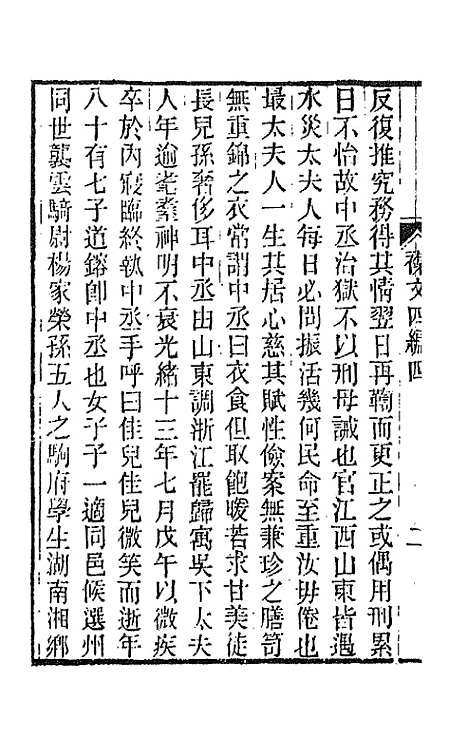 襍文四編四
二
反復推究務得其情翌日再鞫而更正之或偶用刑累
日不怡故中丞治獄不以刑母誡也官江西山東皆遇
水災太夫人每日必問振活幾何民命至重汝毋倦也
最太夫人一生其居心慈其賦性儉案無兼珍之膳笥
無重錦之衣常謂中丞曰衣食但取飽暖若求甘美徒
長兒孫奢侈耳中丞由山東調浙江罷歸寓吳下太夫
人年逾耄耋神明不衰光緒十三年七月戊午以微疾
卒於內寢臨終執中丞手呼曰佳兒佳兒微笑而逝年
八十有七子道鎔卽中丞也女子子一適同邑候選州
同世襲雲騎尉楊家榮孫五人之駒府學生湖南湘鄉